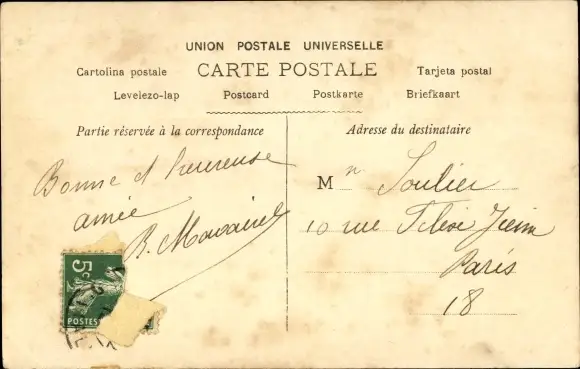 UNION POSTALE UNIVERSELLE
CARTE POSTALE
Cartolina postale
Tarjeta postal
Levelezo-lap Postcard Postkarte Briefkaart
Partie réservée à la correspondance
Adresse du destinataire
Bonne et heureuse
année
R.
Mn Soulier
10 rue
Paris
18
5c
POSTES